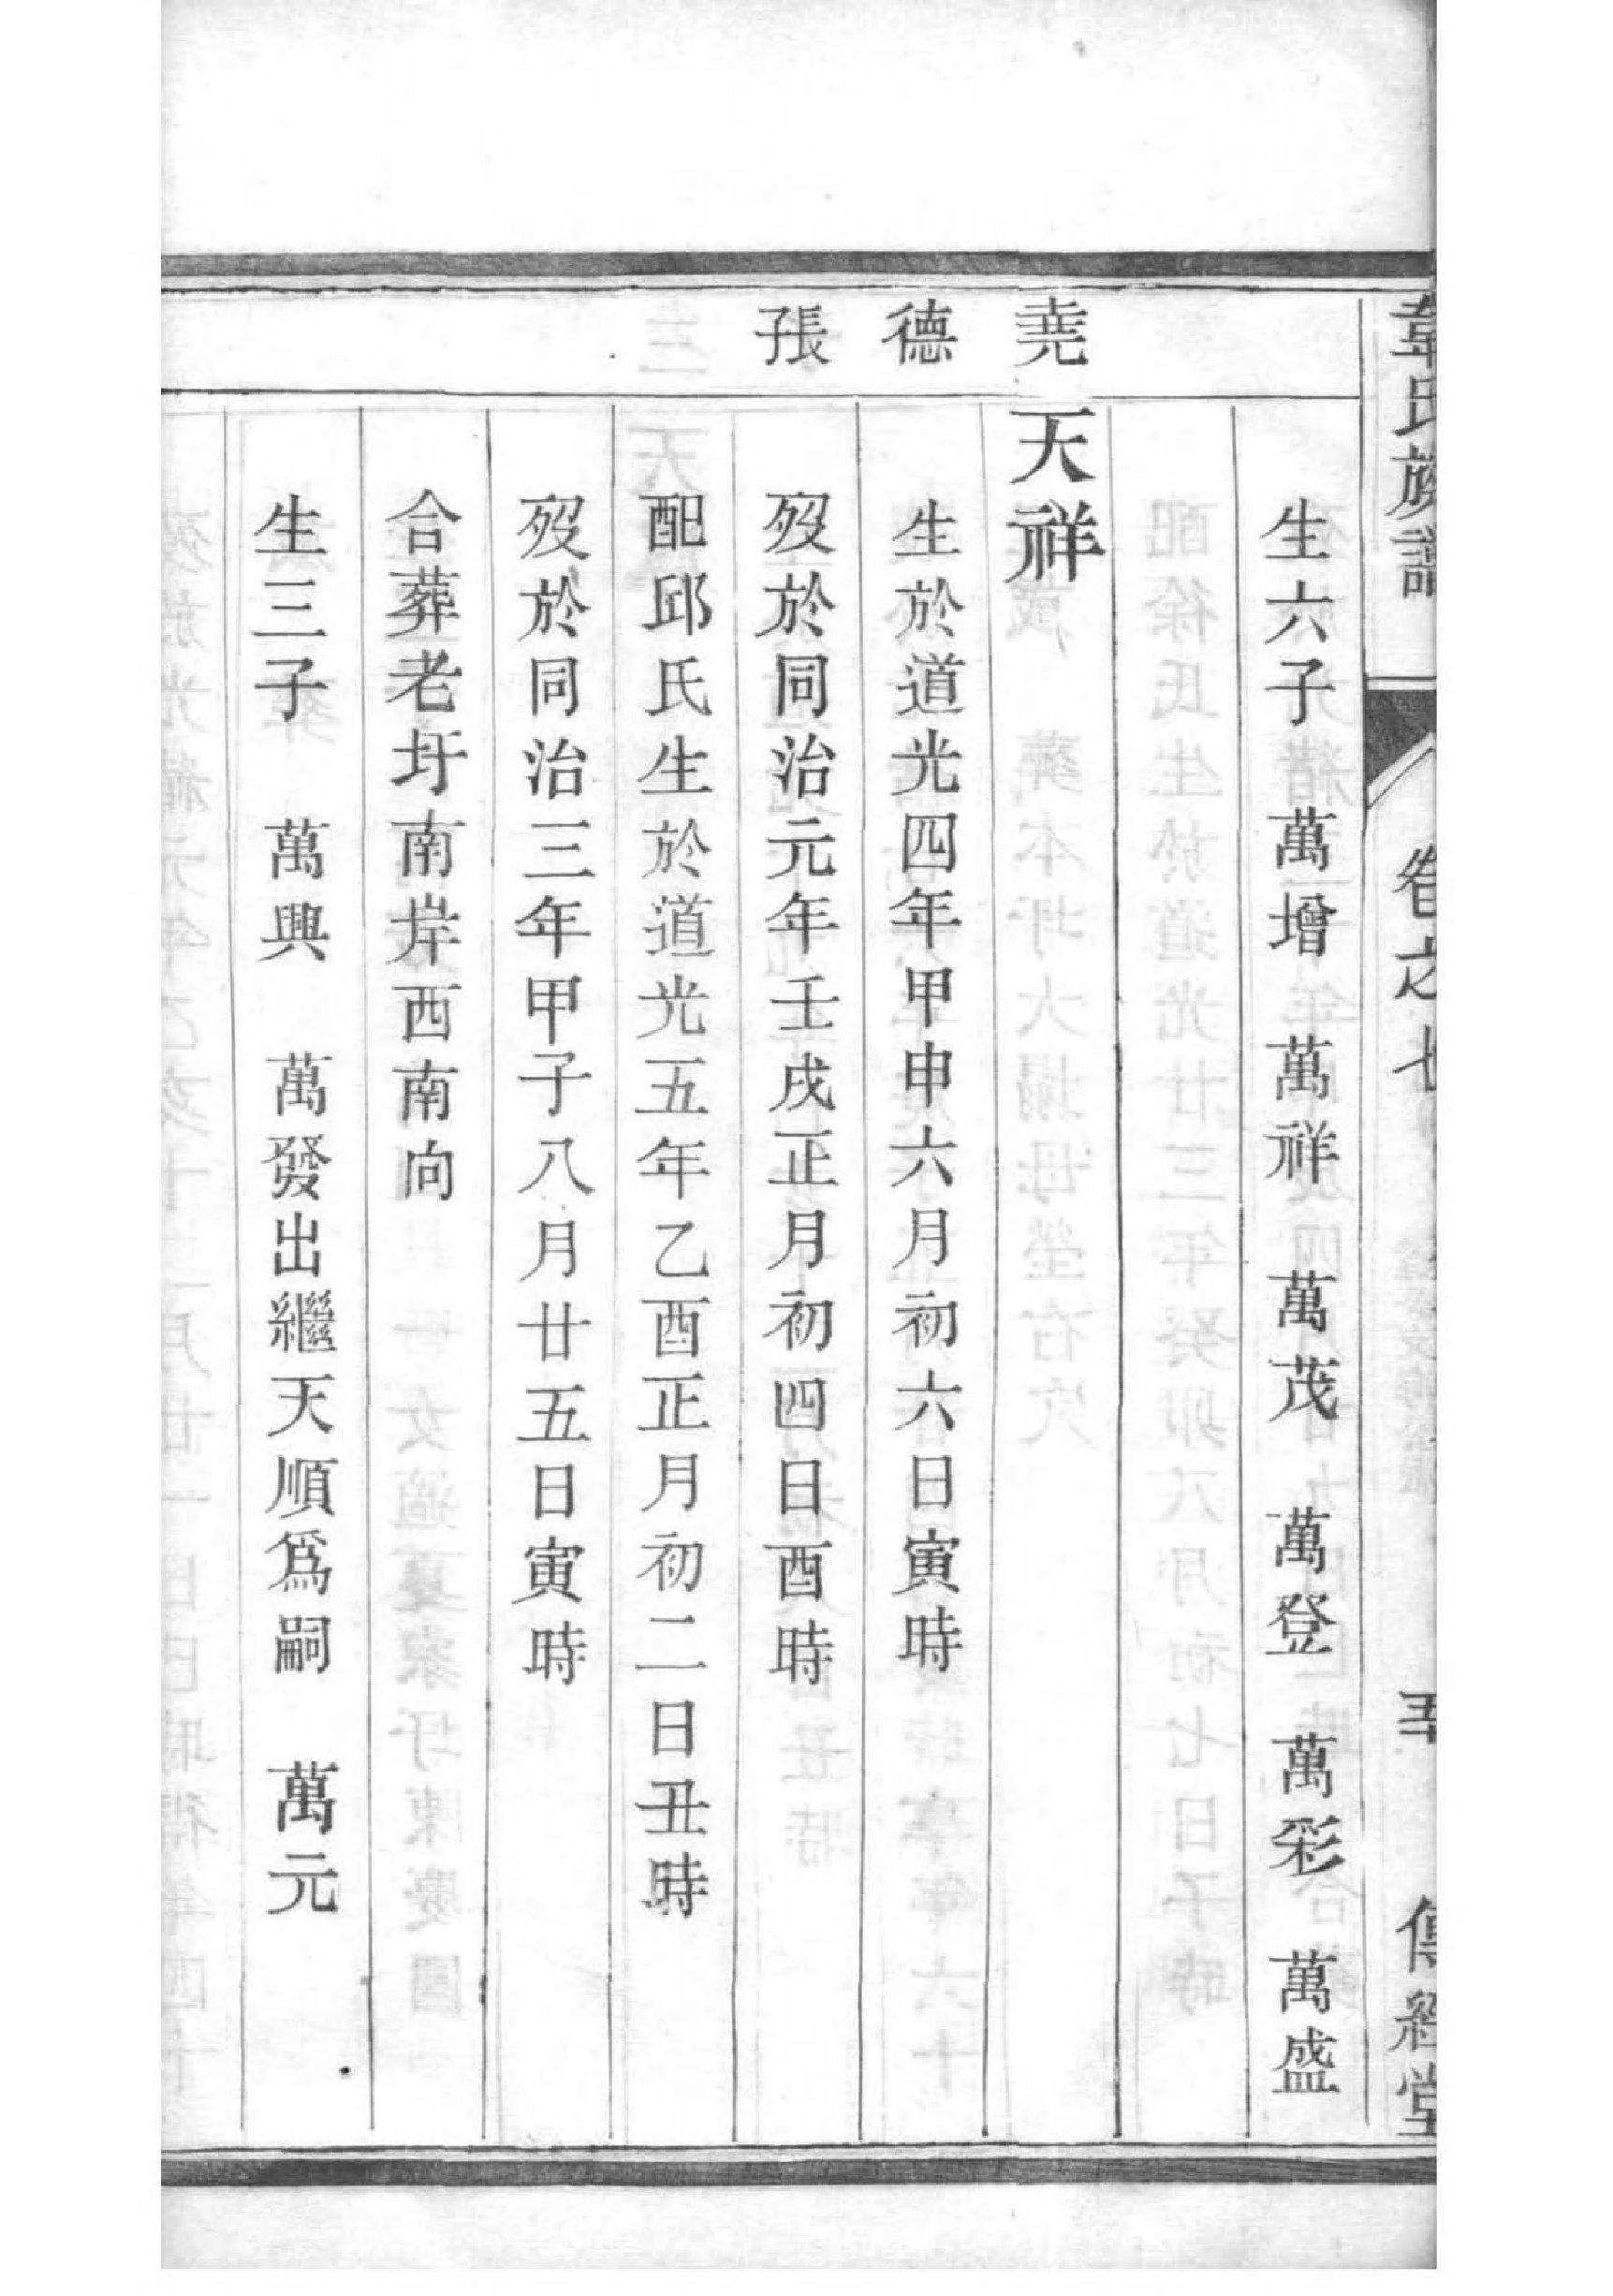 韋氏族譜　卷之七　傳經堂
生六子　萬增　萬祥　萬茂　萬登　萬彩　萬盛
堯德張
天祥
生於道光四年甲申六月初六日寅時
歿於同治元年壬戌正月初四日酉時
配邱氏生於道光五年乙酉正月初二日丑時
歿於同治三年甲子八月廿五日寅時
合葬老圩南岸西南向
生三子　萬興　萬發出繼天順爲嗣　萬元